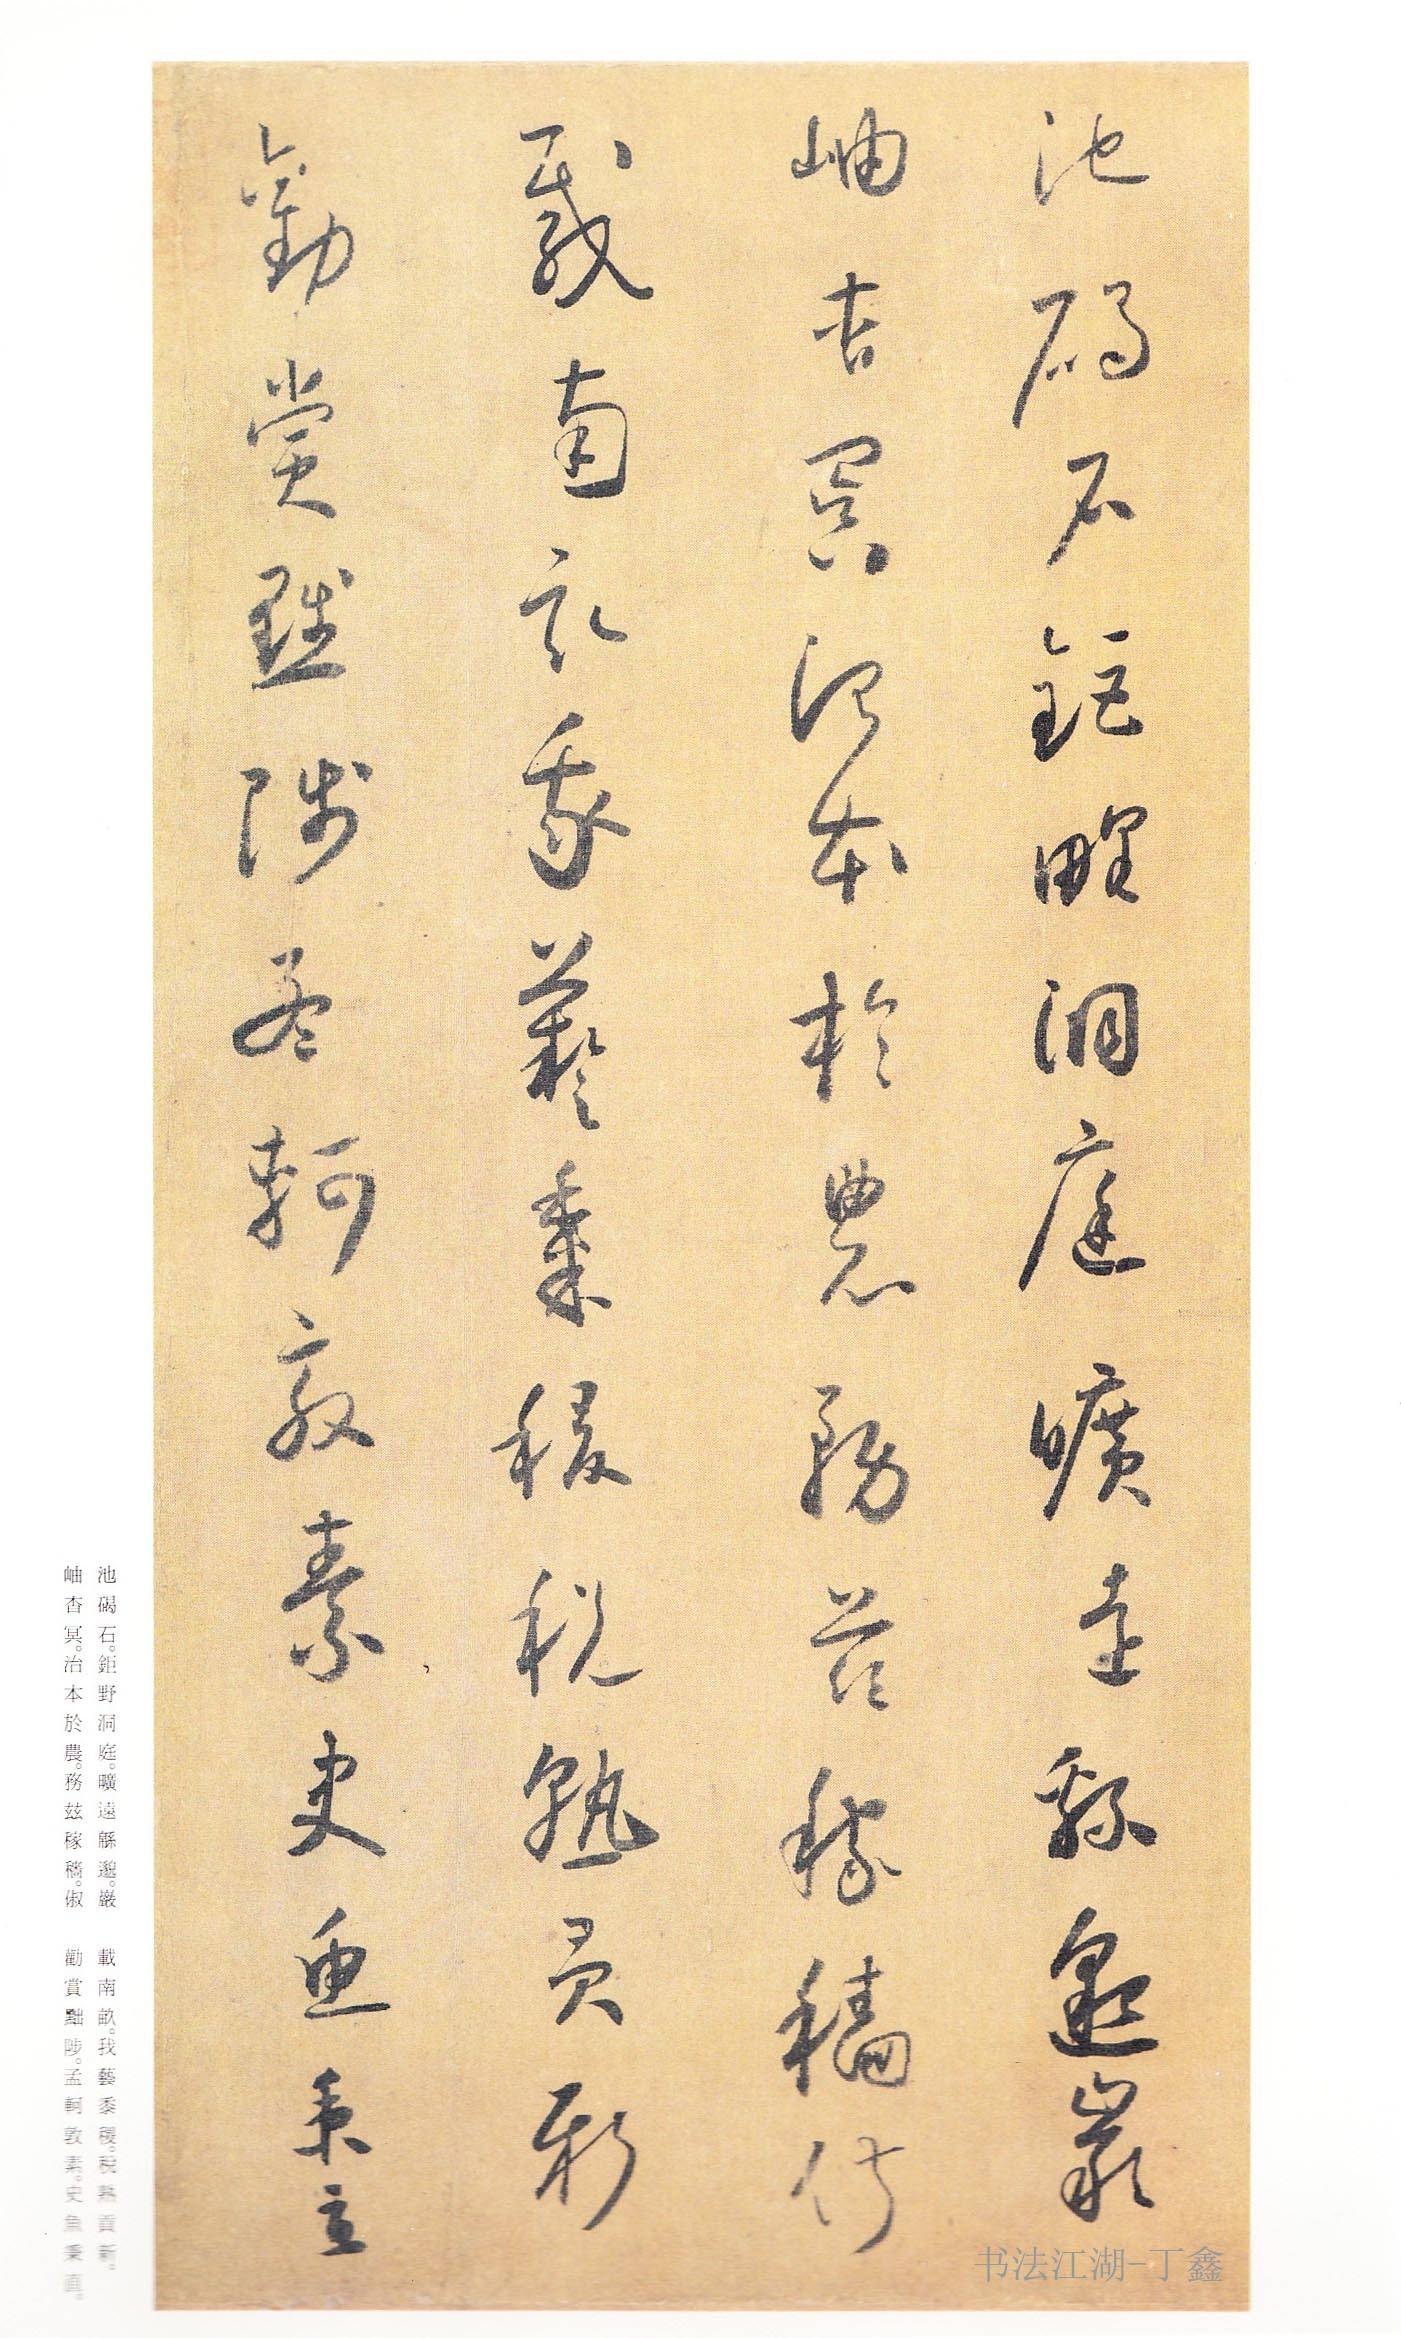 池碣石鉅野洞庭曠遠緜邈巖
岫杳冥治本於農務茲稼穡俶
載南畝我藝黍稷稅熟貢新
勸賞黜陟孟軻敦素史魚秉直
书法江湖-丁鑫
池碣石。鉅野洞庭。曠遠緜邈。巖
岫杳冥。治本於農。務茲稼穡。俶
載南畝。我藝黍稷。稅熟貢新。
勸賞黜陟。孟軻敦素。史魚秉直。